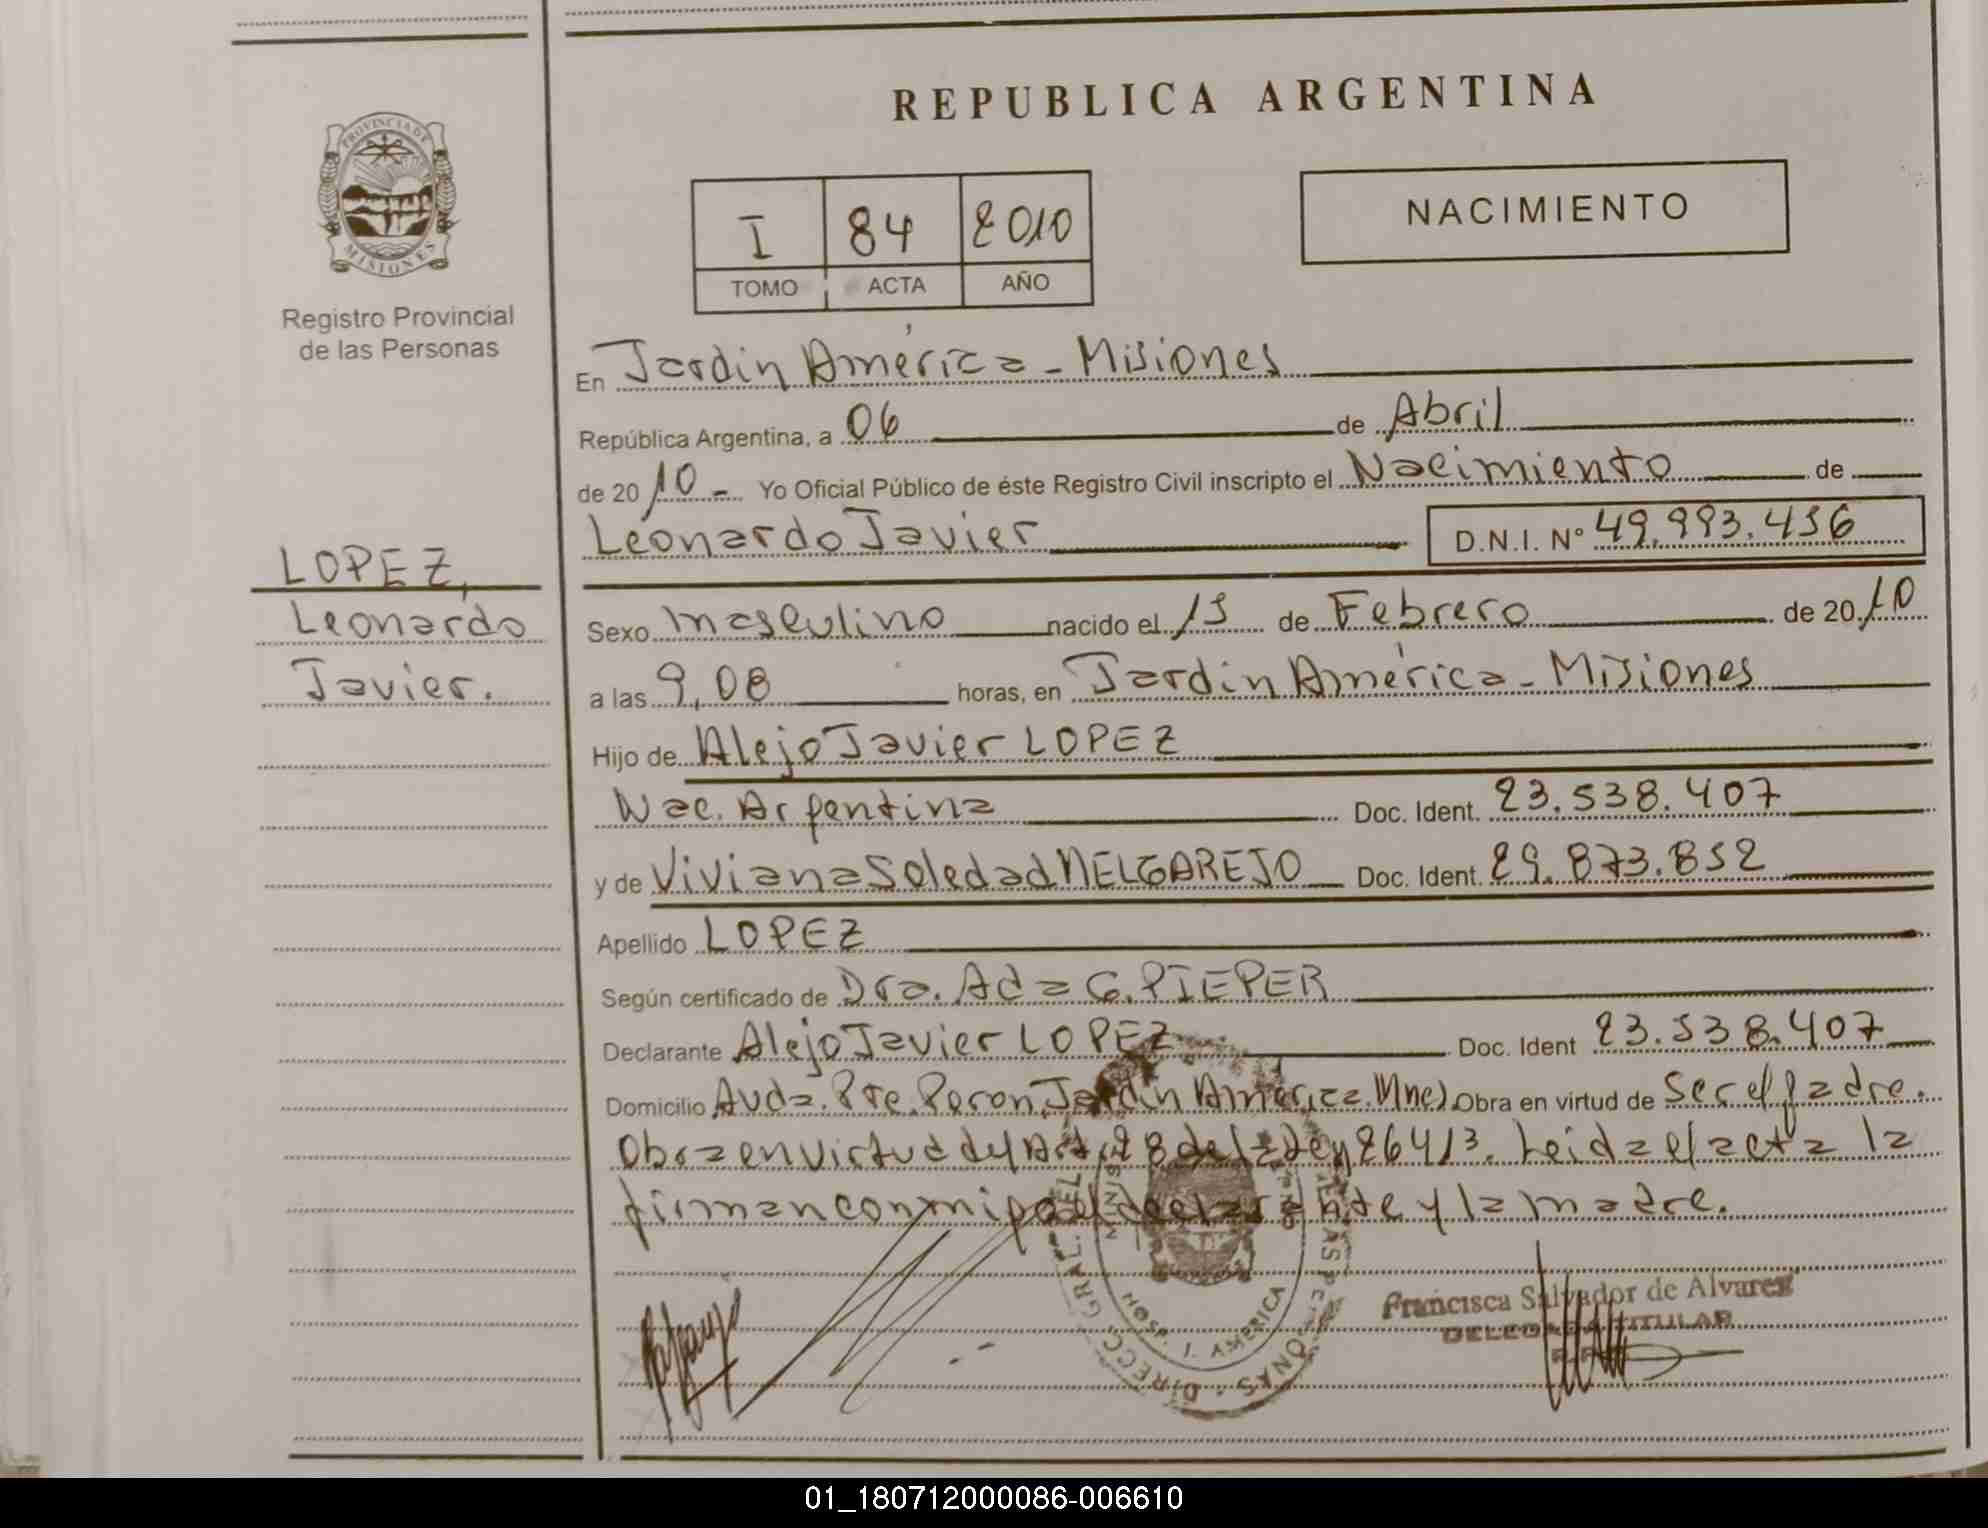 REPUBLICA ARGENTINA
PROVINCIA DE
MISIONES
Registro Provincial
de las Personas
I 84 2010
TOMO ACTA AÑO
NACIMIENTO
En Jardin América - Misiones
República Argentina, a 06 de Abril
de 2010 - Yo Oficial Público de éste Registro Civil inscripto el Nacimiento de
Leonardo Javier D.N.I. Nº 49.993.456
LOPEZ,
Leonardo
Javier.
Sexo masculino nacido el 15 de Febrero de 2010
a las 9,08 horas, en Jardin América - Misiones
Hijo de Alejo Javier LOPEZ
Nac. Argentina Doc. Ident. 23.538.407
y de Viviana Soledad MELGAREJO Doc. Ident. 29.873.852
Apellido LOPEZ
Según certificado de Dra. Ada G. PIEPER
Declarante Alejo Javier LOPEZ Doc. Ident 23.538.407
Domicilio Avda. Pte. Peron, Jardin América. Mnes Obra en virtud de ser el padre.
Obra en virtud del Art. 28 de la Ley 26413. Leida el acta la
firman conmigo el declarante y la madre.
Francisca Salvador de Alvarez
DELEGADA TITULAR
DIRECC. GRAL. DEL
HOSP. J. AMERICA
01_180712000086-006610